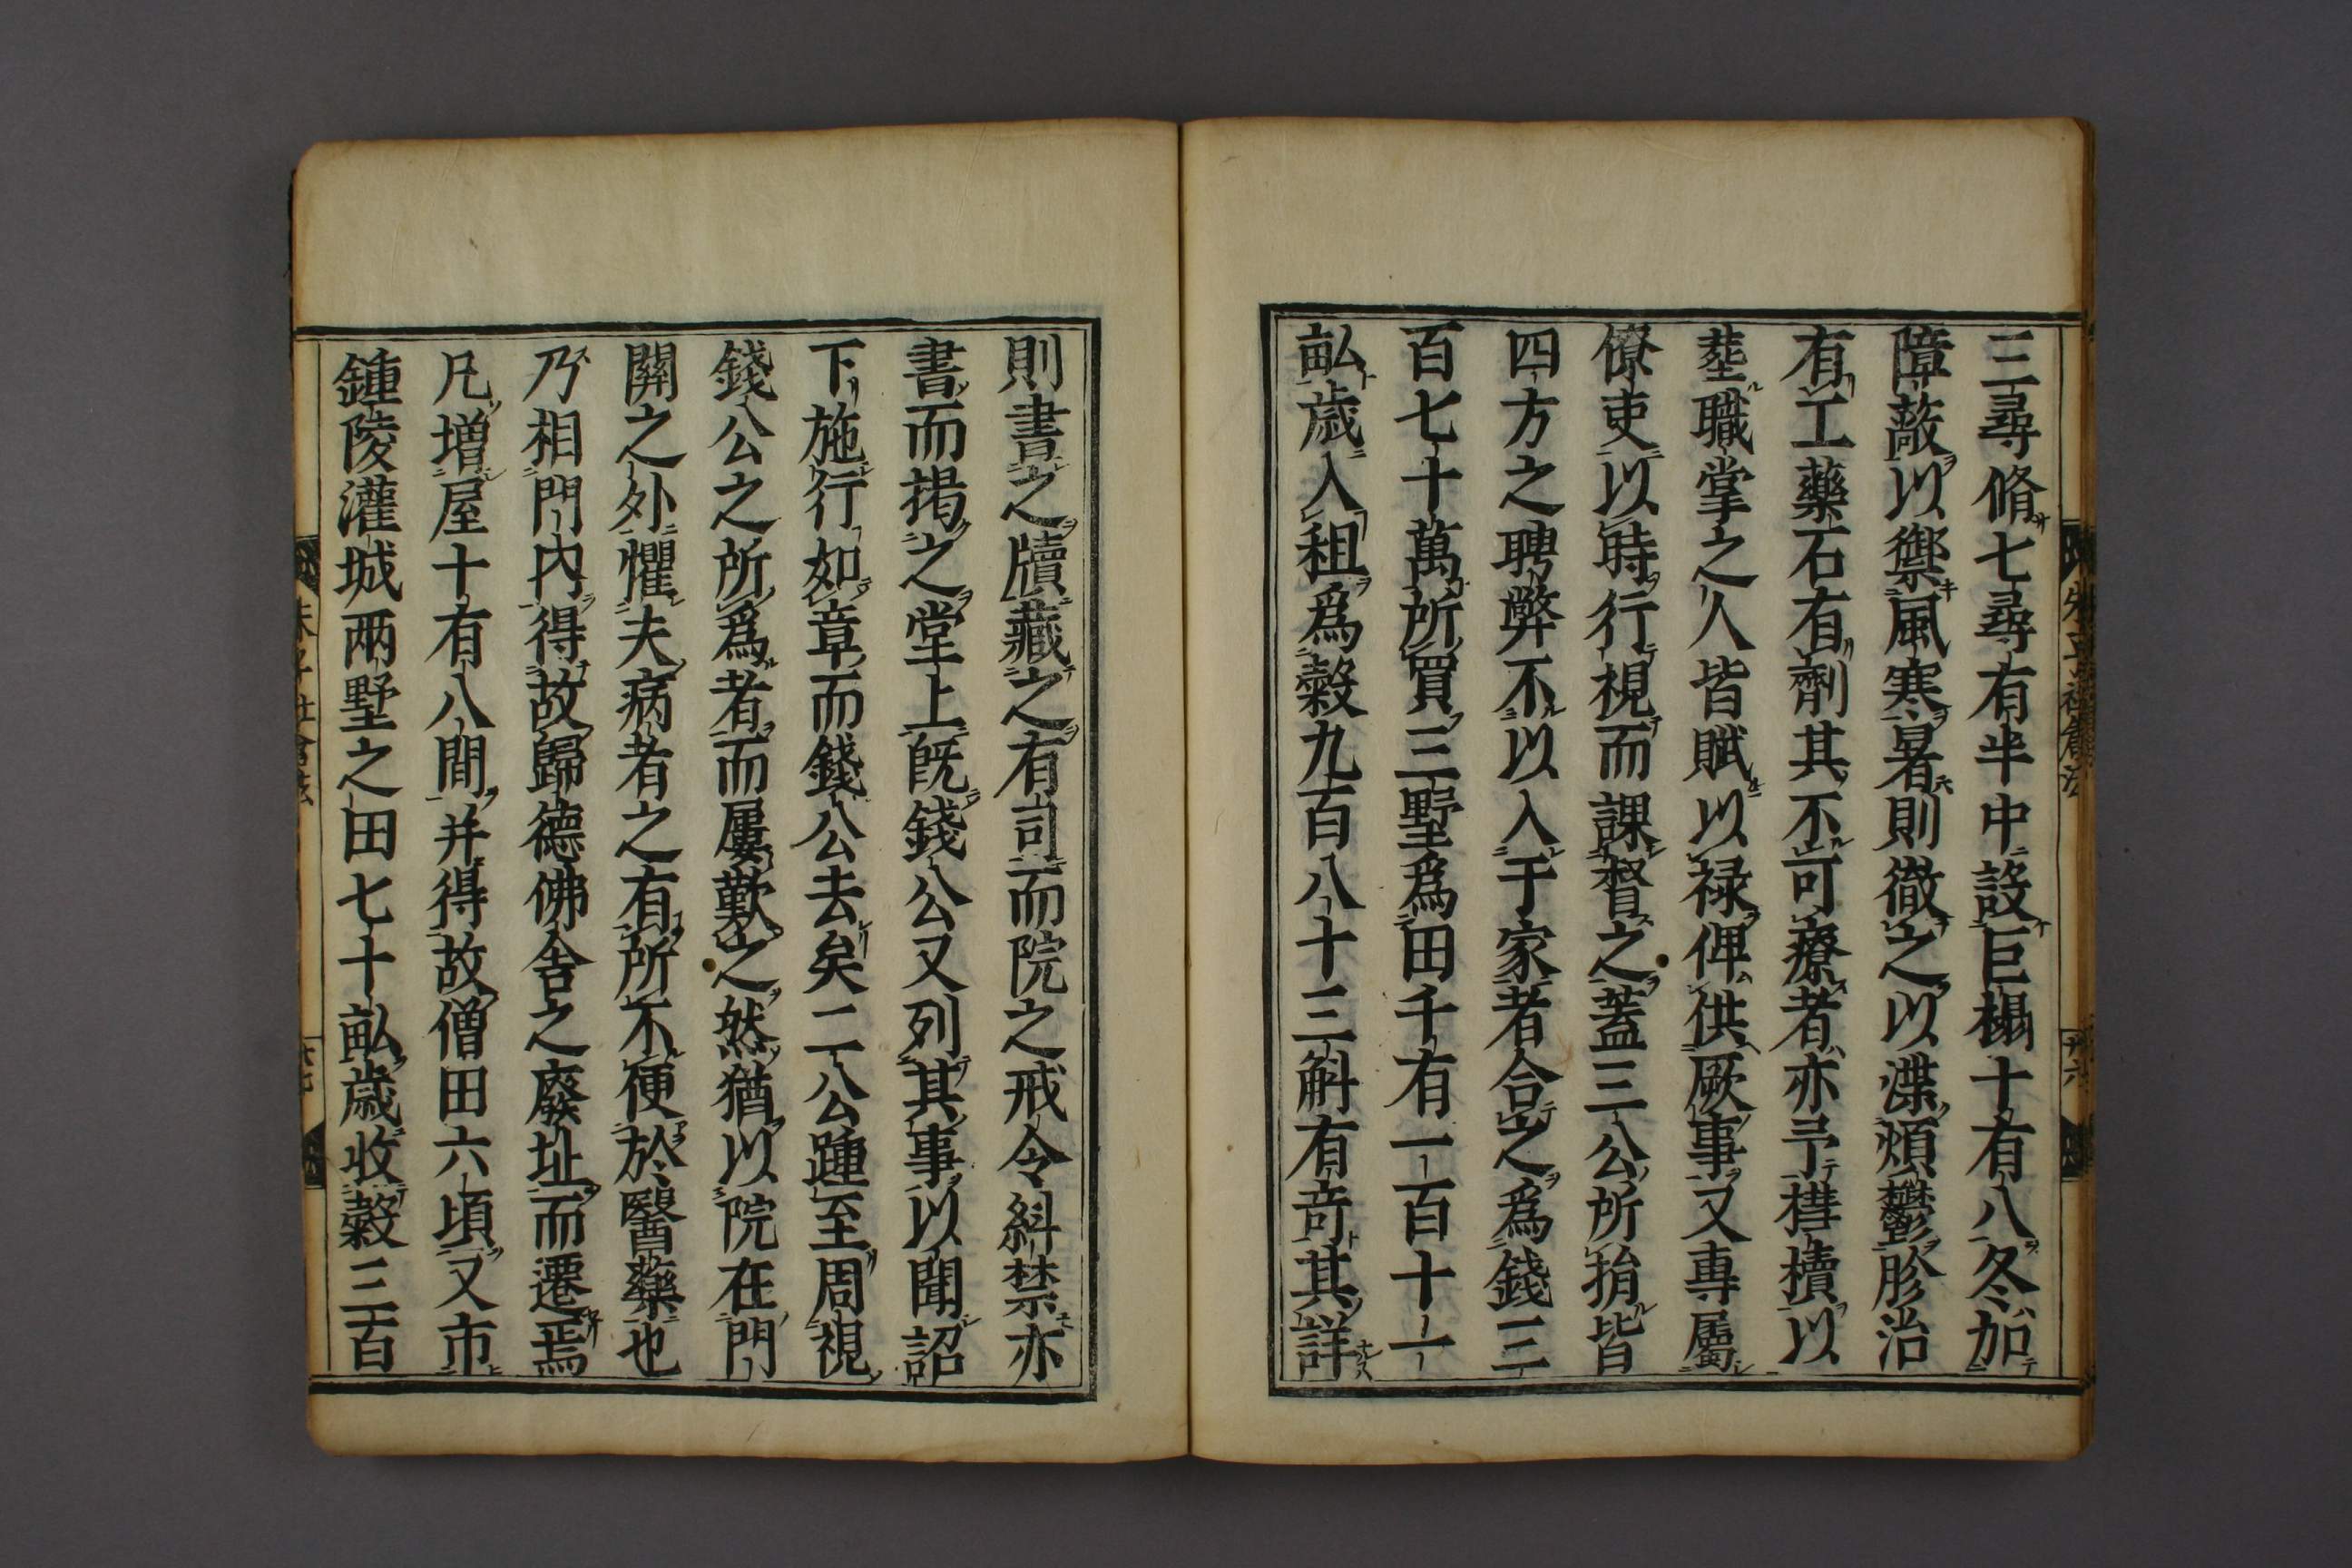 三尋脩七尋有半中設巨榻十有八冬加
障蔽以禦風寒暑則徹之以渫煩鬱胗治
有工藥石有劑其不可療者亦予槥櫝以
葬職掌之人皆賦以禄俾供厥事又專屬
僚吏以時行視而課督之蓋三公所捐皆
四方之聘弊不以入于家者合之爲錢三
百七十萬所買三墅爲田千有一百十一
畝歳入租爲穀九百八十三斛有奇其詳
則書之牘藏之有司而院之戒令糾禁亦
書而掲之堂上既錢公又列其事以聞詔
下施行如章而錢公去矣二公踵至周視
錢公之所爲者而屢歎之然猶以院在門
關之外懼夫病者之有所不便於醫藥也
乃相門内得故歸德佛舎之廢址而遷焉
凡増屋十有八間并得故僧田六頃又市
鍾陵灌城兩墅之田七十畝歳收穀三百